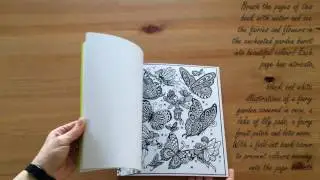 Brush the pages of this
book with water and see
the fairies and flowers in
the enchanted garden burst
into beautiful colour! Each
page has intricate,
black and white
illustrations of a fairy
garden covered in roses, a
lake of lily pads, a fairy
fruit patch and lots more.
With a fold-out back cover
to prevent colours running
into the page beneath.